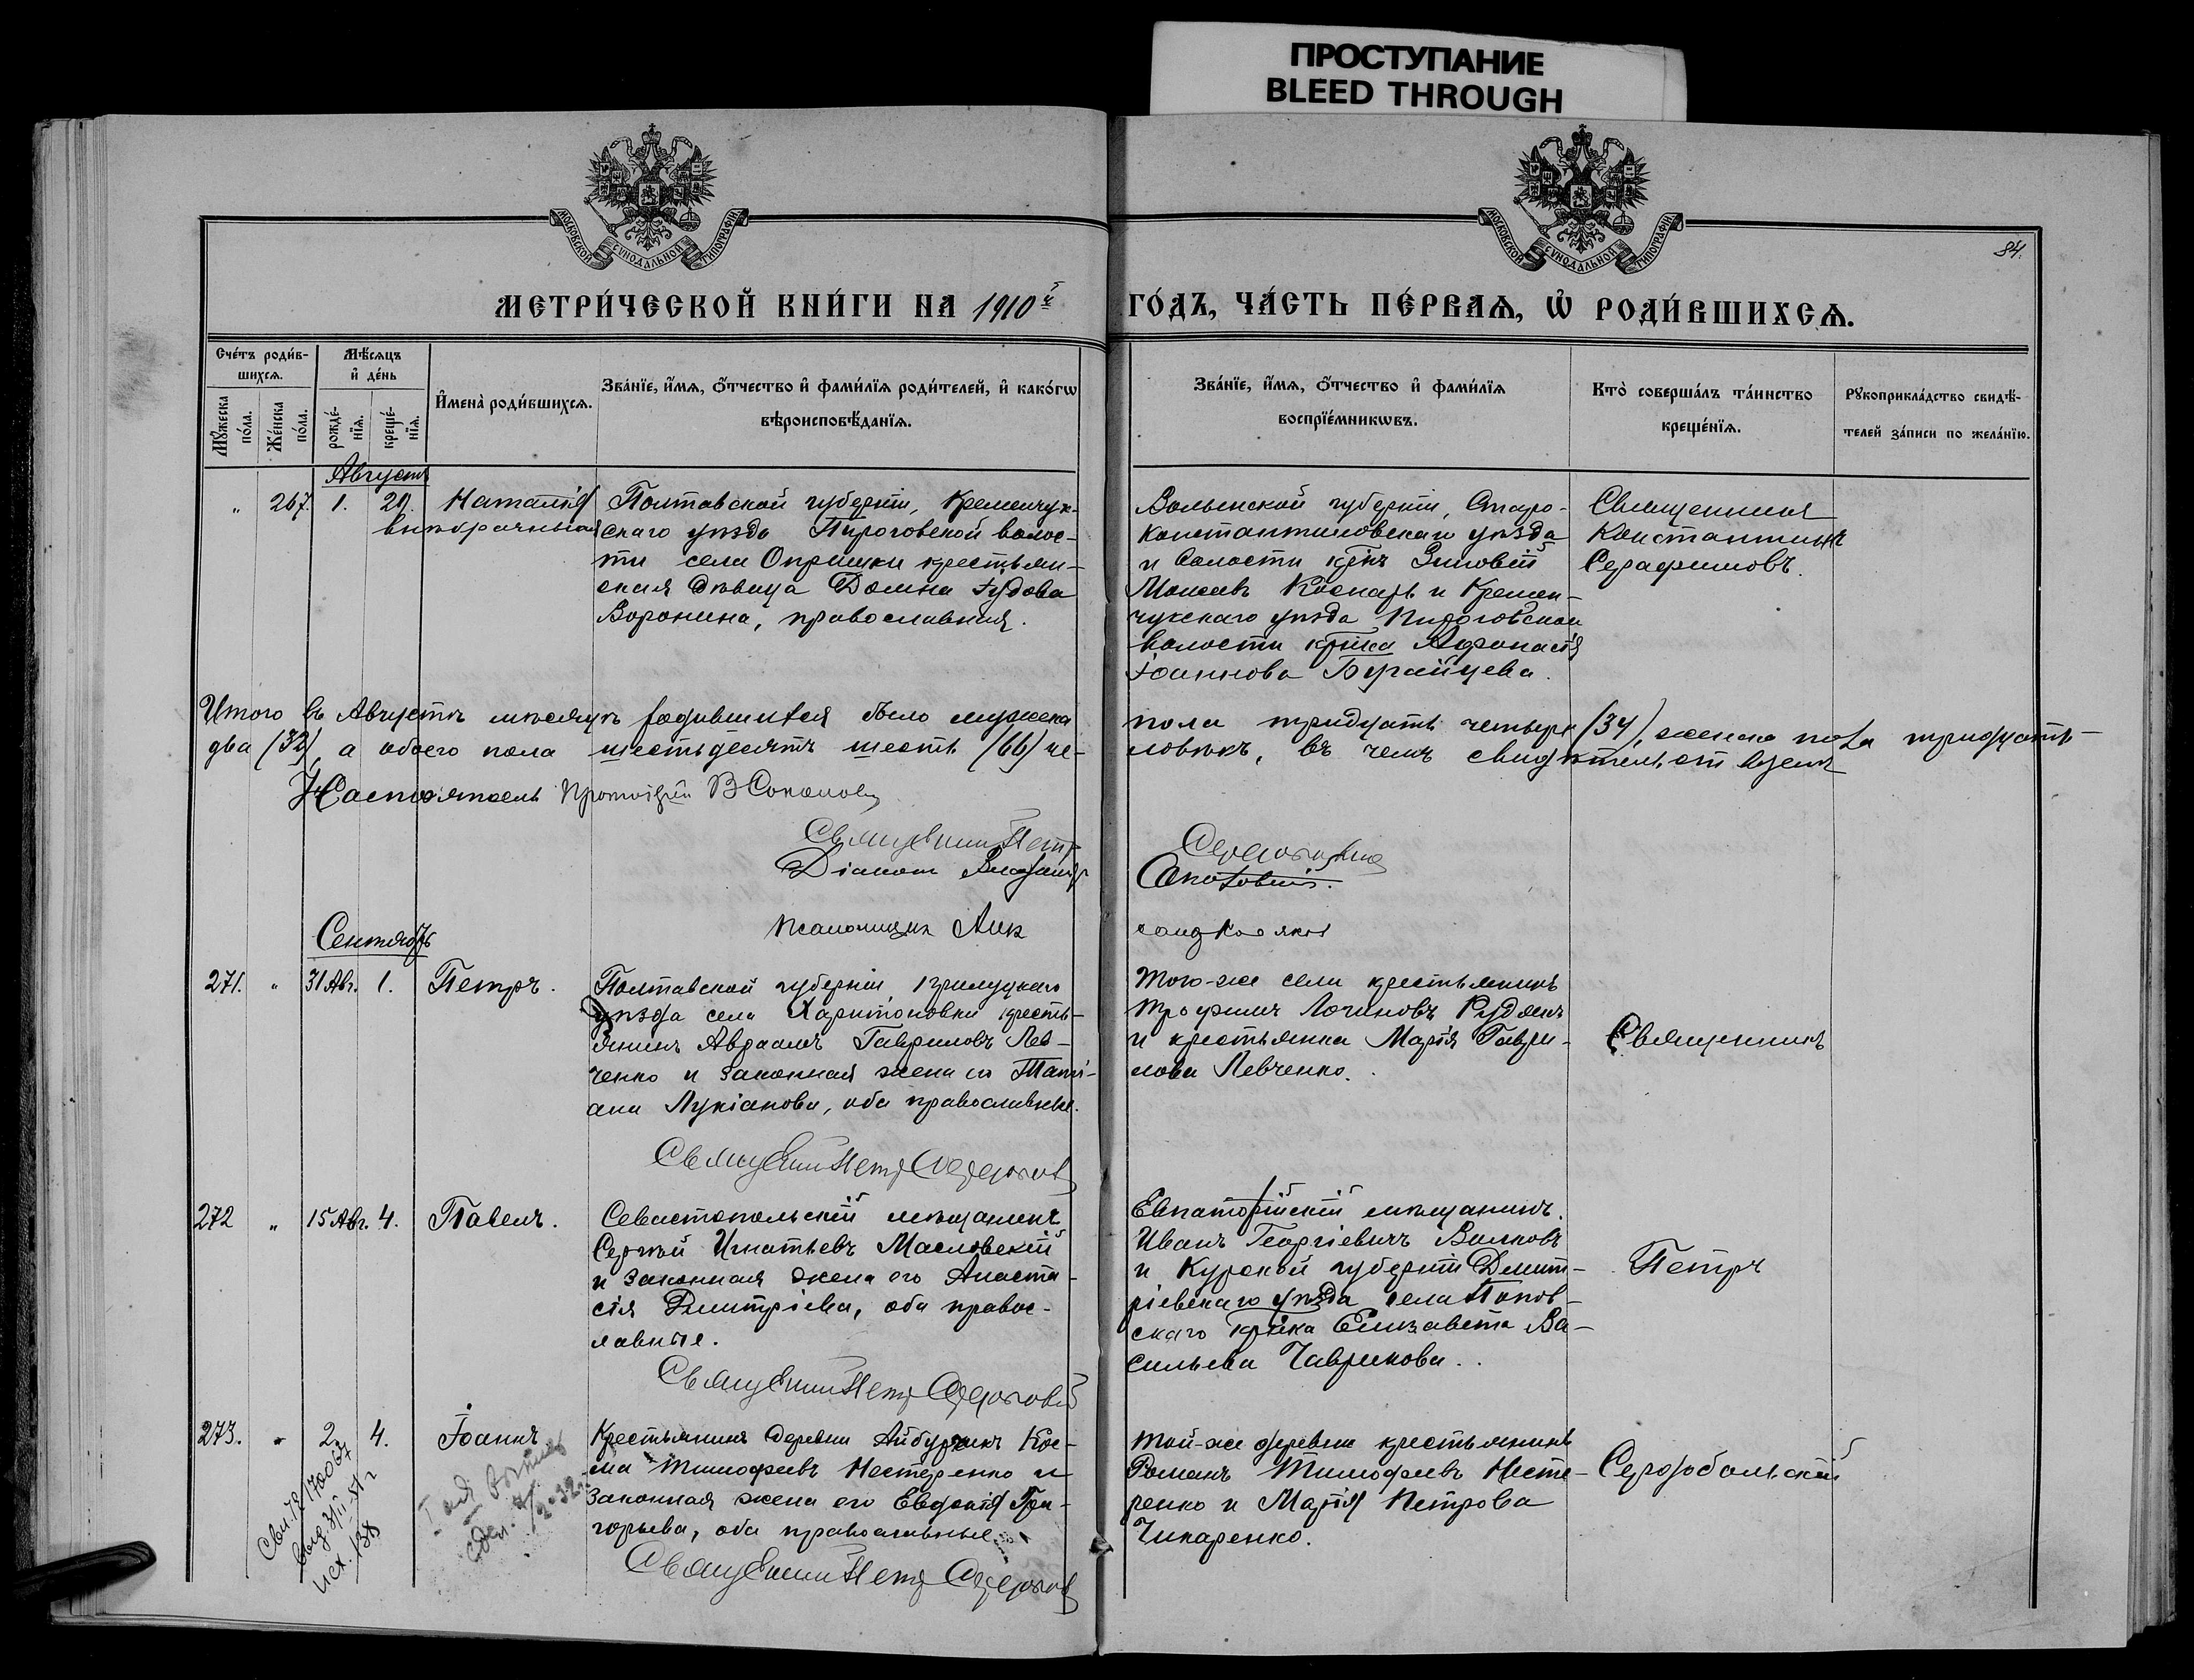 ПРОСТУПАНИЕ
BLEED THROUGH
МОСКОВСКОЙ СѴНОДАЛЬНОЙ ТИПОГРАФІИ
МОСКОВСКОЙ СѴНОДАЛЬНОЙ ТИПОГРАФІИ
84.
МЕТРИ́ЧЕСКОЙ КНИ́ГИ НА 1910й ГО́ДЪ, ЧА́СТЬ ПЕ́РВАѦ, Ѡ҆ РОДИ́ВШИХСѦ.
Сче́тъ роди́в-
шихсѧ.
Мꙋ́жеска по́ла.
Же́нска по́ла.
Мѣ́сѧцъ и҆ де́нь
рожде́-
нїѧ.
креще́-
нїѧ.
И҆мена̀ роди́вшихсѧ.
Зва́нїе, и҆́мѧ, ѻ҆́тчество и҆ фами́лїѧ роди́телей, и҆ како́гѡ
вѣроисповѣ́данїѧ.
Зва́нїе, и҆́мѧ, ѻ҆́тчество и҆ фами́лїѧ
воспрїе́мникѡвъ.
Кто̀ соверша́лъ та́инство
креще́нїѧ.
Рꙋкоприкла́дство свидѣ́-
телей за́писи по жела́нїю.
Августъ
" 267. 1. 29. Наталія
внѣбрачная
Полтавской губерніи, Кременчуг-
скаго уѣзда Пироговской волос-
ти села Опришки крестьян-
ская дѣвица Домна Іудова
Воронина, православная.
Волынской губерніи, Старо-
константиновскаго уѣзда
и волости кр-нъ Зиновій
Моисеевъ Коснарь и Кремен-
чугскаго уѣзда Пироговской
волости кр-нка Афанасія
Іоаннова Бугайцева.
Священникъ
Константинъ
Серафимовъ.
Итого въ Августѣ мѣсяцѣ родившихся было мужска пола тридцать четыре (34), женска пола тридцать
два (32), а обоего пола шестьдесятъ шесть (66) че-ловѣкъ, въ чемъ свидѣтельствуемъ
Настоятель Протоіерей В Соколов
Священник Петр
Діакон Владимір
Псаломщик Алек
Сентябрь
271. " 31 Авг. 1. Петръ.
Полтавской губерніи, Прилуцкаго
уѣзда села Харитоновки кресть-
янинъ Авраамъ Гавриловъ Лев-
ченко и законная жена его Таті-
ана Лукіанова, оба православные.
Того-же села крестьянинъ
Трофимъ Логиновъ Рудякъ
и крестьянка Марія Гаври-
лова Левченко.
Священникъ
Священник Петр
272 " 15 Авг. 4. Павелъ.
Севастопольскій мѣщанинъ
Сергѣй Игнатьевъ Масловскій
и законная жена его Анаста-
сія Дмитріева, оба правос-
лавные.
Евпаторійскій мѣщанинъ
Иванъ Георгіевичъ Волковъ
и Курской губерніи Дмит-
ріевскаго уѣзда села Попов-
скаго кр-нка Елизавета Ва-
сильева Гаврикова.
Петръ
Священник Петр
273. " 2 4. Іоаннъ
Крестьянинъ деревни Айбурчикъ Кос-
ма Тимофеевъ Нестеренко и
законная жена его Евдокія Гри-
горьева, оба православные.
Той-же деревни крестьянинъ
Романъ Тимофеевъ Несте-
ренко и Марія Петрова
Чикаренко.
Серебольскій
Священник Петр